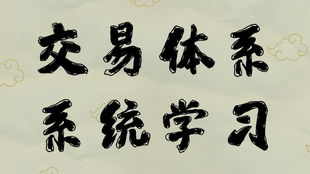 交易体系
系统学习